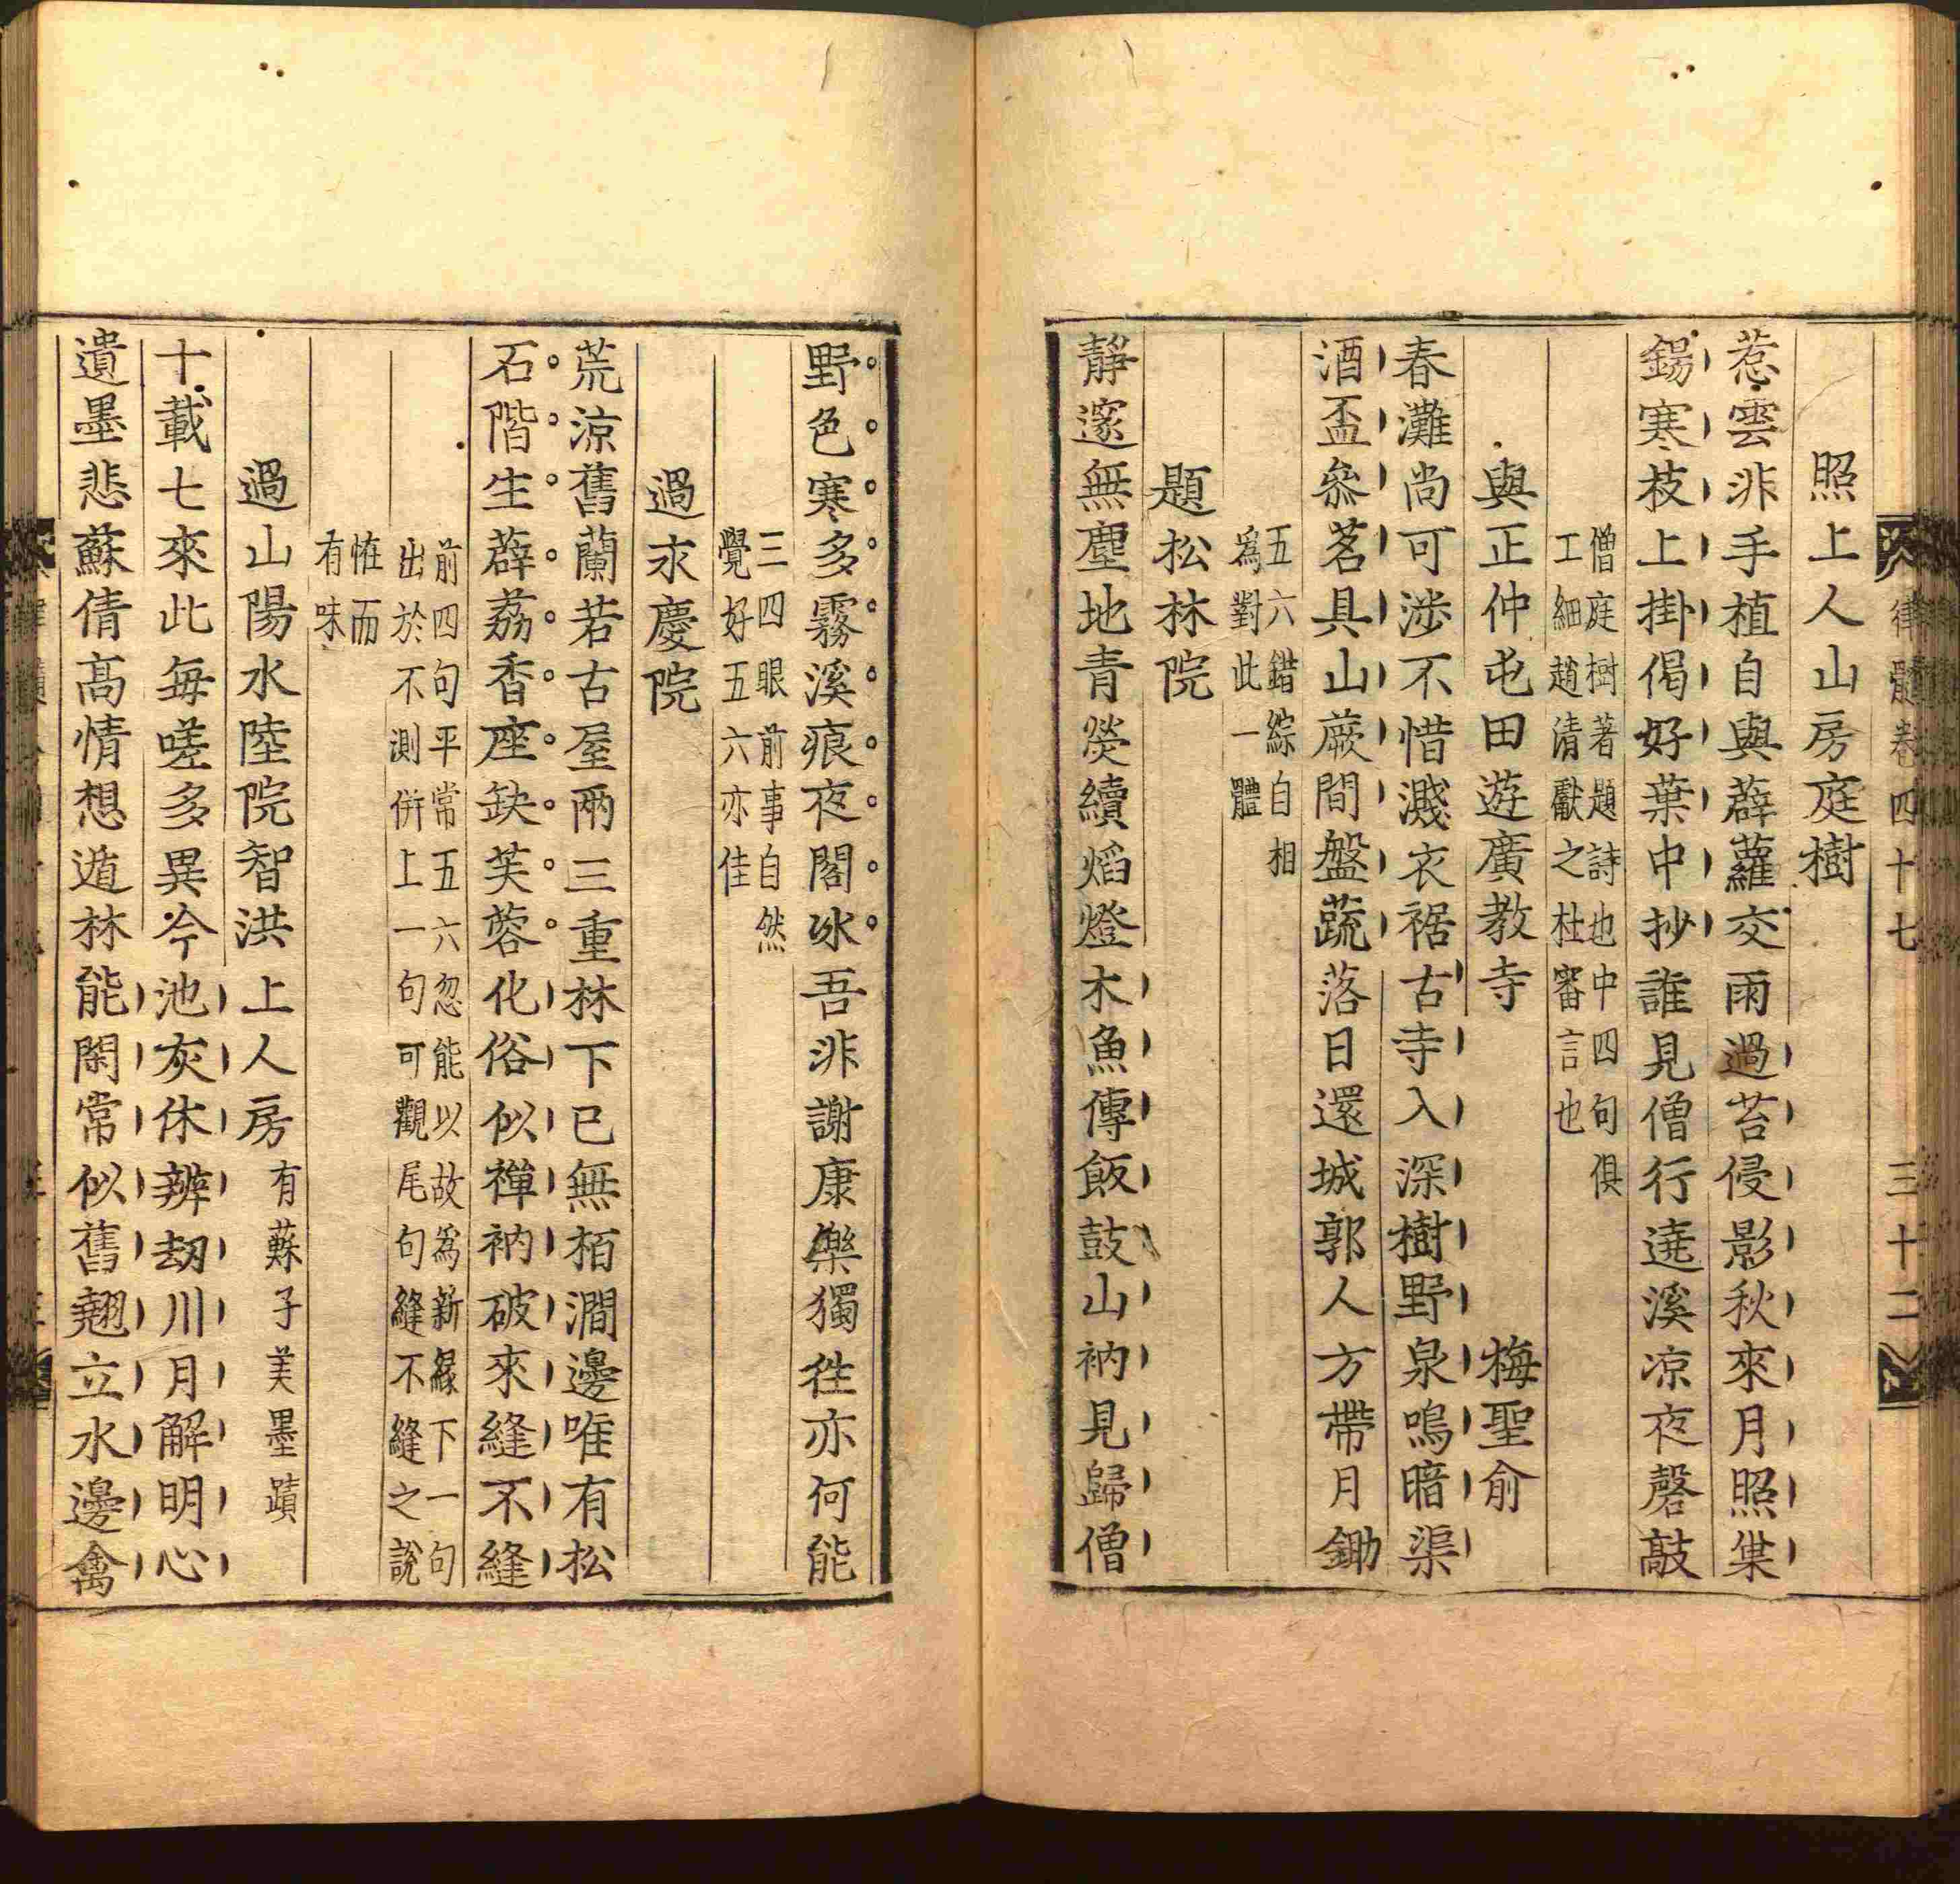 律髓卷四十七 三十二
照上人山房庭樹
惹雲非手植自與薜蘿交雨過苔侵影秋來月照巢
錫寒枝上掛偈好葉中抄誰見僧行遶溪凉夜磬敲
僧庭樹著題詩也中四句俱
工細趙清獻之杜審言也
與正仲屯田遊廣教寺 梅聖俞
春灘尚可涉不惜濺衣裾古寺入深樹野泉嗚暗渠
酒盃參茗具山蕨間盤蔬落日還城郭人方帶月鋤
五六錯綜自相
爲對此一體
題松林院
靜邃無塵地青熒續焰燈木魚傳飯鼓山衲見歸僧
野色寒多霧溪痕夜閣冰吾非謝康樂獨徃亦何能
三四眼前事自然
覺好五六亦佳
過永慶院
荒凉舊蘭若古屋兩三重林下已無栢澗邊唯有松
石階生薜荔香座缺芙蓉化俗似禪衲破來縫不縫
前四句平常五六忽能以故爲新緣下一句
出於不測併上一句可觀尾句縫不縫之說
恠而
有味
過山陽水陸院智洪上人房有蘇子美墨蹟
十載七來此每嗟多異今池灰休辨刼川月解明心
遺墨悲蘇倩高情想遁林能閑常似舊翹立水邊禽